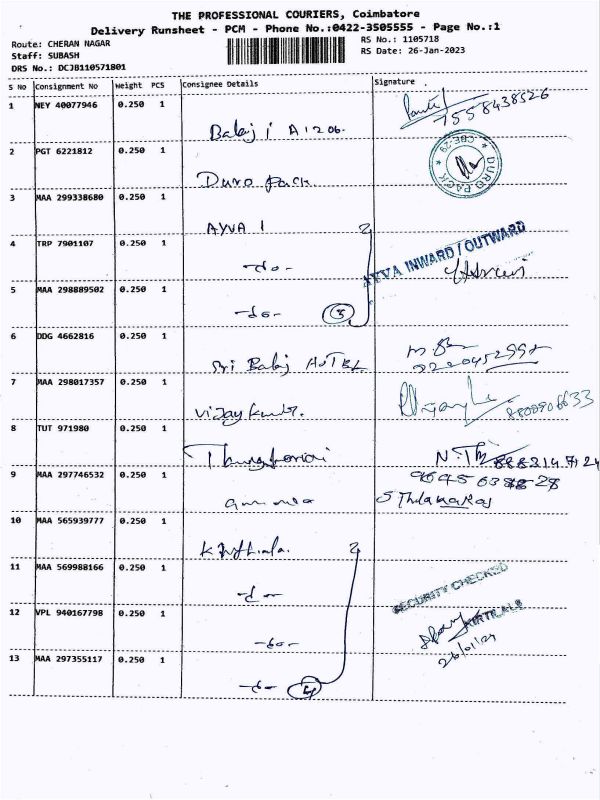 THE PROFESSIONAL COURIERS, Coimbatore
Delivery Runsheet - PCM - Phone No.:0422-3505555 - Page No.:1
Route: CHERAN NAGAR
RS No.: 1105718
Staff: SUBASH
RS Date: 26-Jan-2023
DRS No.: DCJB110571801
S No Consignment No Weight PCS Consignee Details Signature
1 NEY 40077946 0.250 1
7558438526
Balaji A1206.
2 PGT 6221812 0.250 1
DURO PACK CBE-29
Duro pack.
3 MAA 299338680 0.250 1
AYVA 1
AYVA INWARD / OUTWARD
4 TRP 7901107 0.250 1
-do-
5 MAA 298889502 0.250 1
-do- 3
6 DDG 4662816 0.250 1
Sri Balaj HOTEL
7 MAA 298017357 0.250 1
Vijay Kumar.
8 TUT 971980 0.250 1
N.
9 MAA 297746532 0.250 1
S Thilakaraj
10 MAA 565939777 0.250 1
11 MAA 569988166 0.250 1
-do-
SECURITY CHECKED
12 VPL 940167798 0.250 1
KIRTILALS
-do-
26/01/24
13 MAA 297355117 0.250 1
-do- 4